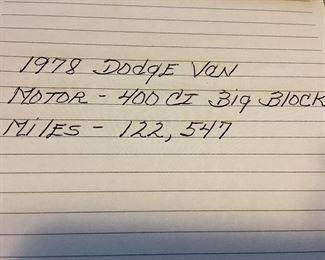 1978 Dodge Van
Motor - 400 CI Big Block
Miles - 122,547